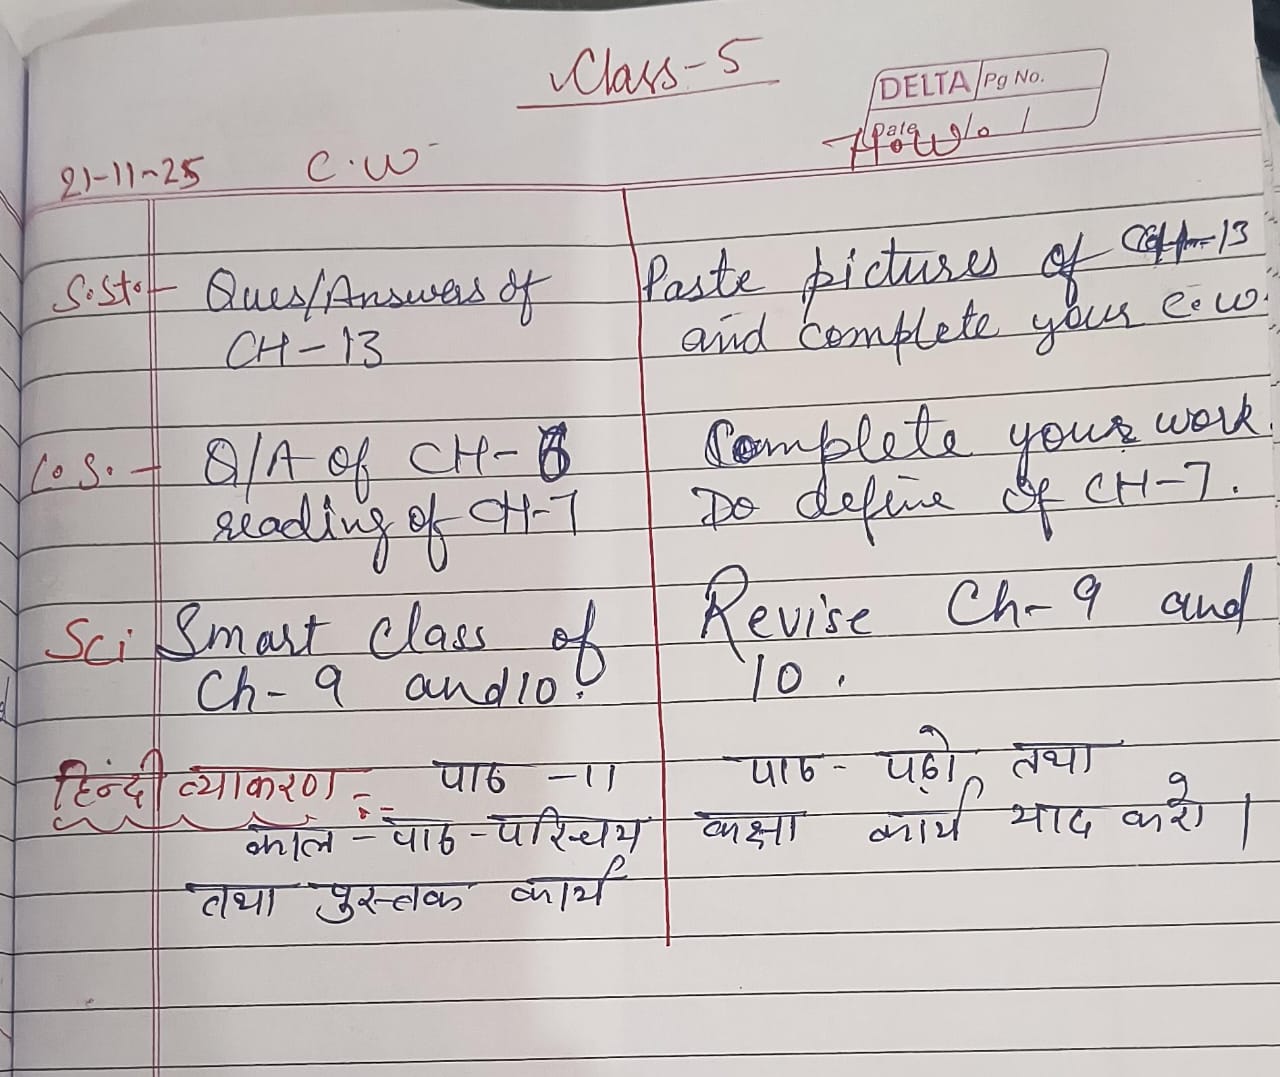 Class-5
DELTA Pg No.
Date
21-11-25 C.W H.W
S.St. - Ques/Answers of Paste pictures of CH-13
CH-13 and complete your C.W.
C.S. - Q/A of CH-6 Complete your work.
reading of CH-7 Do define of CH-7.
Sci Smart Class of Revise Ch-9 and
Ch-9 and 10. 10.
हिन्दी व्याकरण - पाठ -11 पाठ- पढ़ो तथा
काल - पाठ - परिचय कक्षा कार्य याद करो।
तथा पुस्तक कार्य